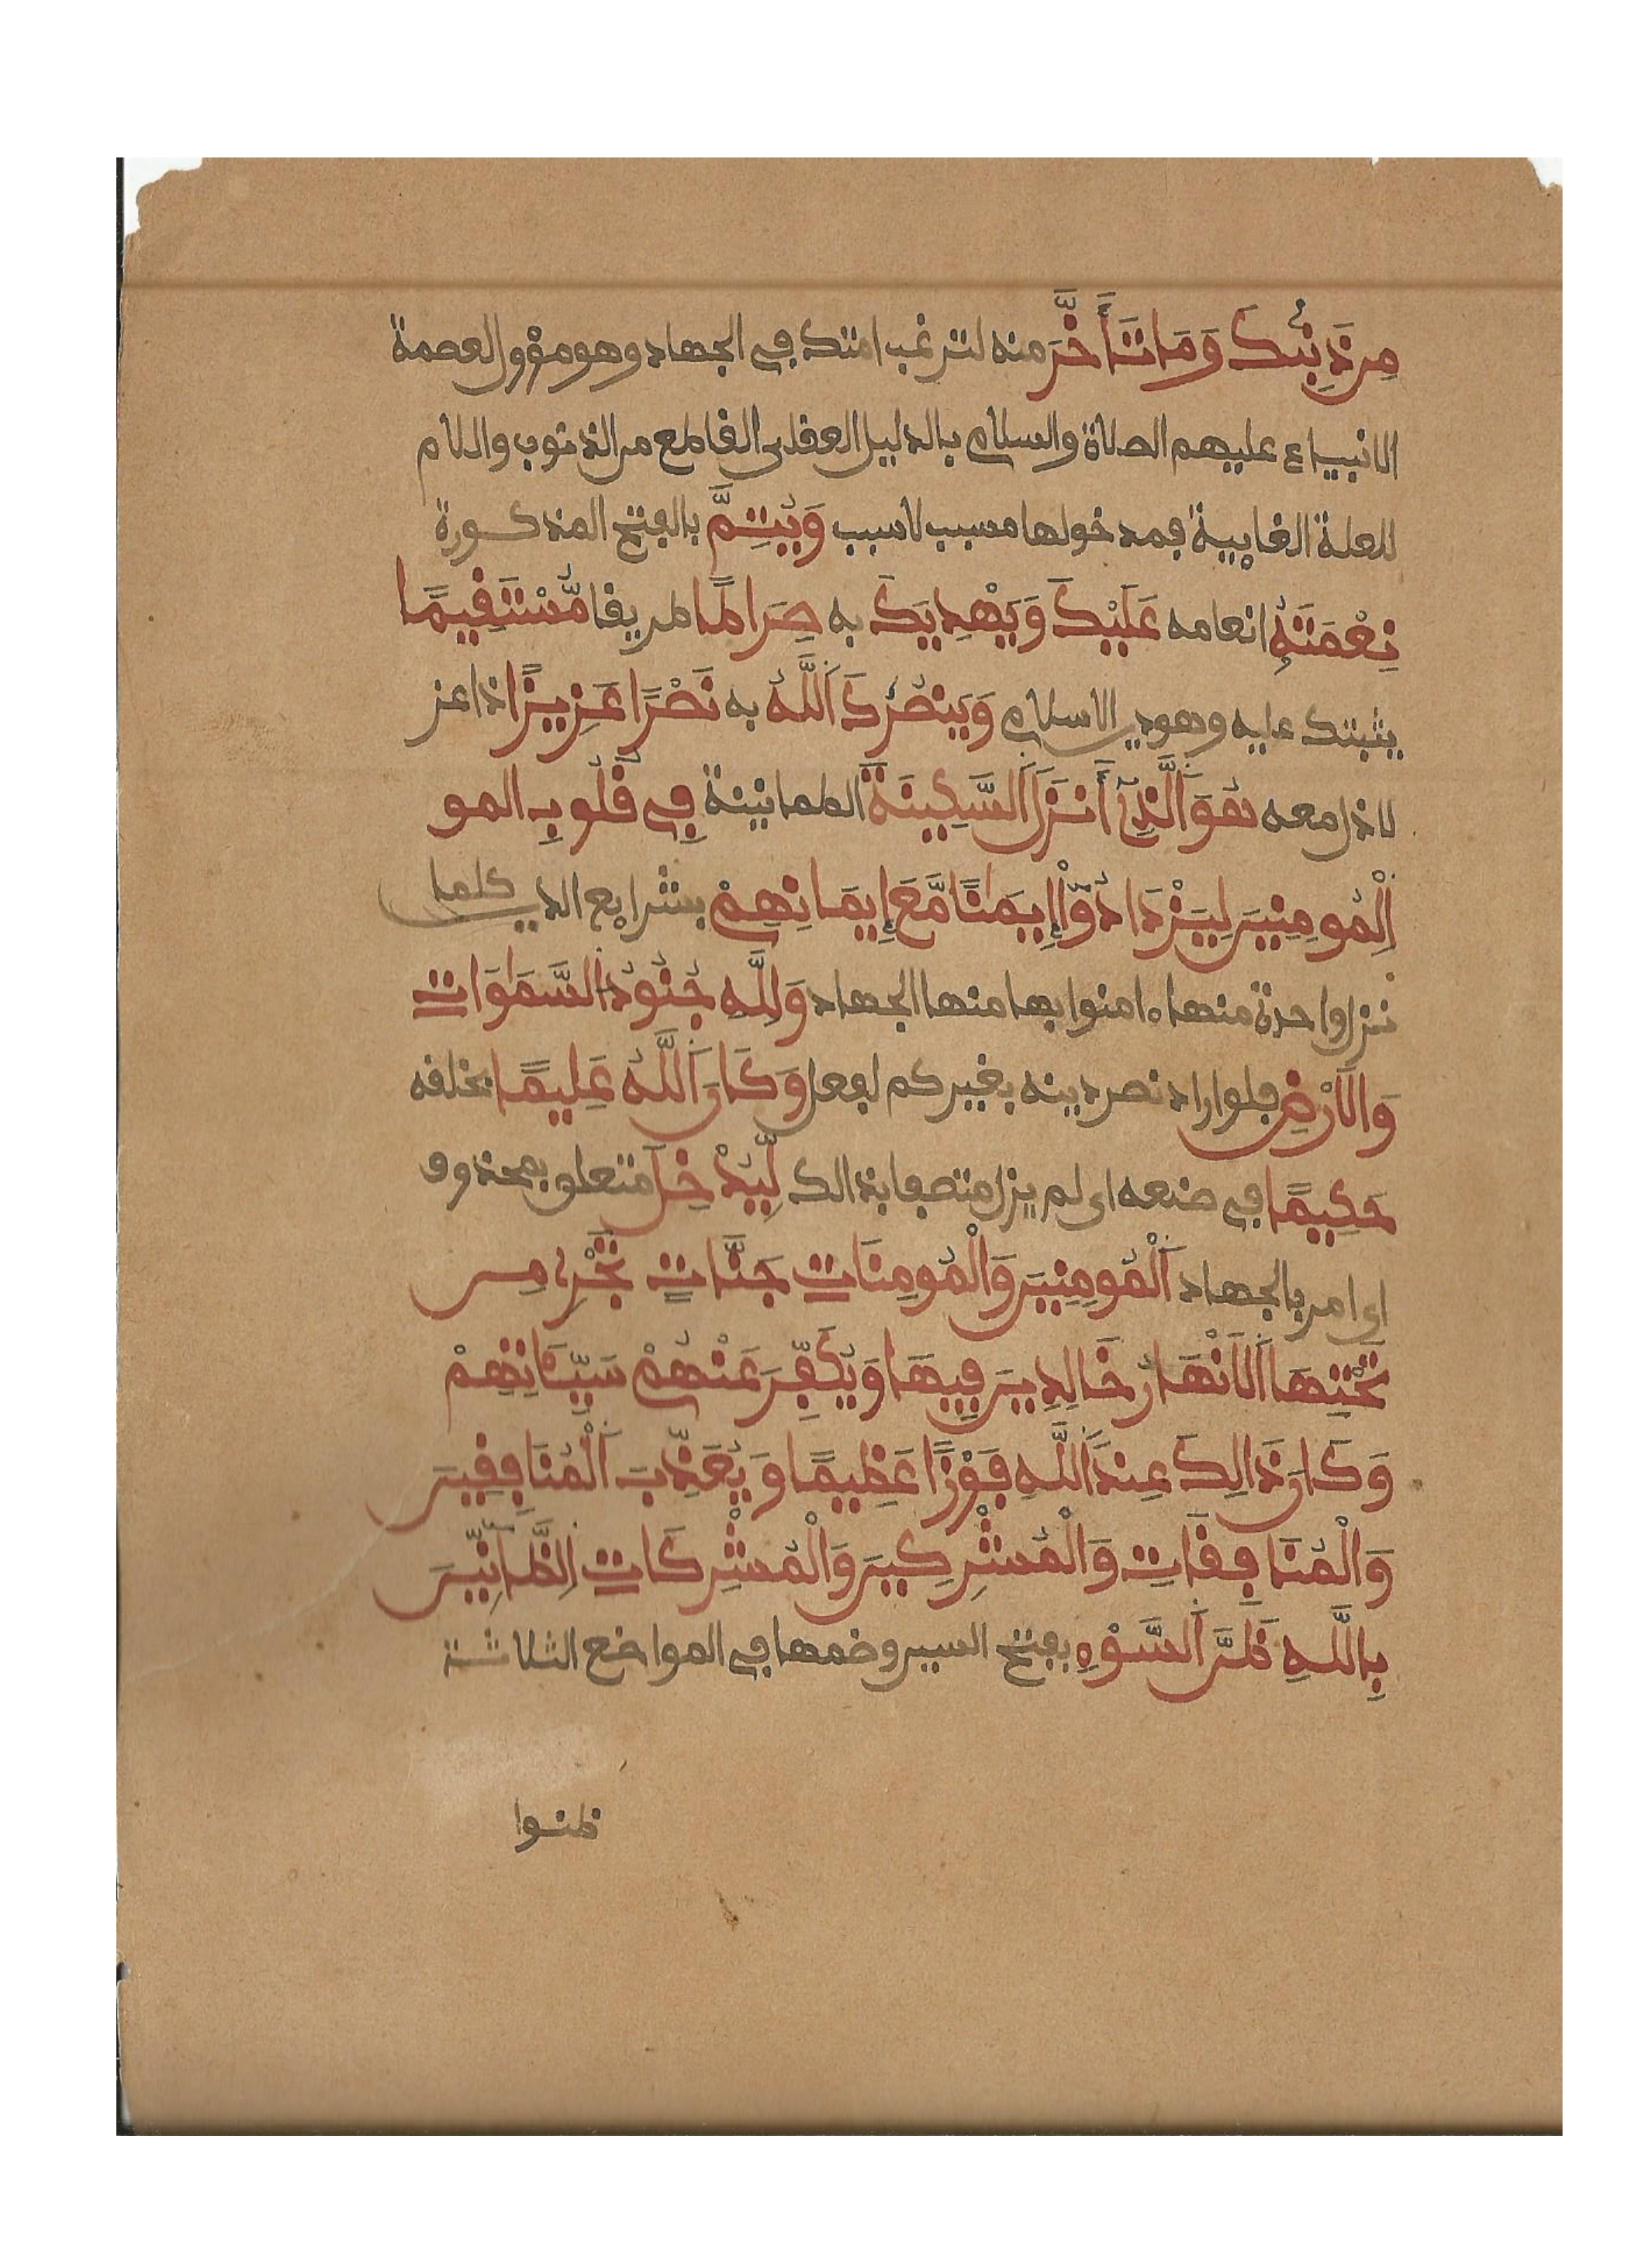 مِن ذَنۢبِكَ وَمَا تَأَخَّرَ منه لترغب امتك في الجهاد وهو مؤول لعصمة
الانبياء عليهم الصلاة والسلام بالدليل العقلي القاطع من الذنوب واللام
للعلة الغايية فمدخولها مسبب لا سبب وَيُتِمَّ بالفتح المذكورة
نِعْمَتَهُۥ انعامه عَلَيْكَ وَيَهْدِيَكَ به صِرَاطًا طريقا مُّسْتَقِيمًا
يثبتك عليه وهو دين الاسلام وَيَنصُرَكَ اَللَّهُ به نَصْرًا عَزِيزًا ذا عز
لا ذل معه هُوَ اَلَّذِےٓ أَنزَلَ اَلسَّكِينَةَ الطمانينة فِے قُلُوبِ المو
اِلْمُومِنِينَ لِيَزْدَادُوٓاْ إِيمَٰنًا مَّعَ إِيمَانِهِمْ بشرايع الدين كلما
نزل واحدة منها ءامنوا بها منها الجهاد وَلِلَّهِ جُنُودُ اُلسَّمَٰوَٰاتِ
وَالَارْضِ فلو اراد نصر دينه بغيركم لفعل وَكَانَ اَللَّهُ عَلِيمًا بخلقه
حَكِيمًا في صنعه اي لم يزل متصفا بذالك لِّيُدْخِلَ متعلق بمحذوف
اي امر بالجهاد اَلْمُومِنِينَ وَالْمُومِنَاتِ جَنَّاتٍ تَجْرِے مِن
تَحْتِهَا اَلَانْهَارُ خَالِدِينَ فِيهَا وَيُكَفِّرَ عَنْهُمْ سَيِّـَٔاتِهِمْ
وَكَانَ ذَالِكَ عِندَ اَللَّهِ فَوْزًا عَظِيمًا وَيُعَذِّبَ اَلْمُنَافِقِينَ
وَالْمُنَافِقَاتِ وَالْمُشْرِكِينَ وَالْمُشْرِكَاتِ اِلظَّانِّينَ
بِاللَّهِ ظَنَّ اَلسَّوْءِ بفتح السين وضمها في المواضع الثلاثة
ظنوا